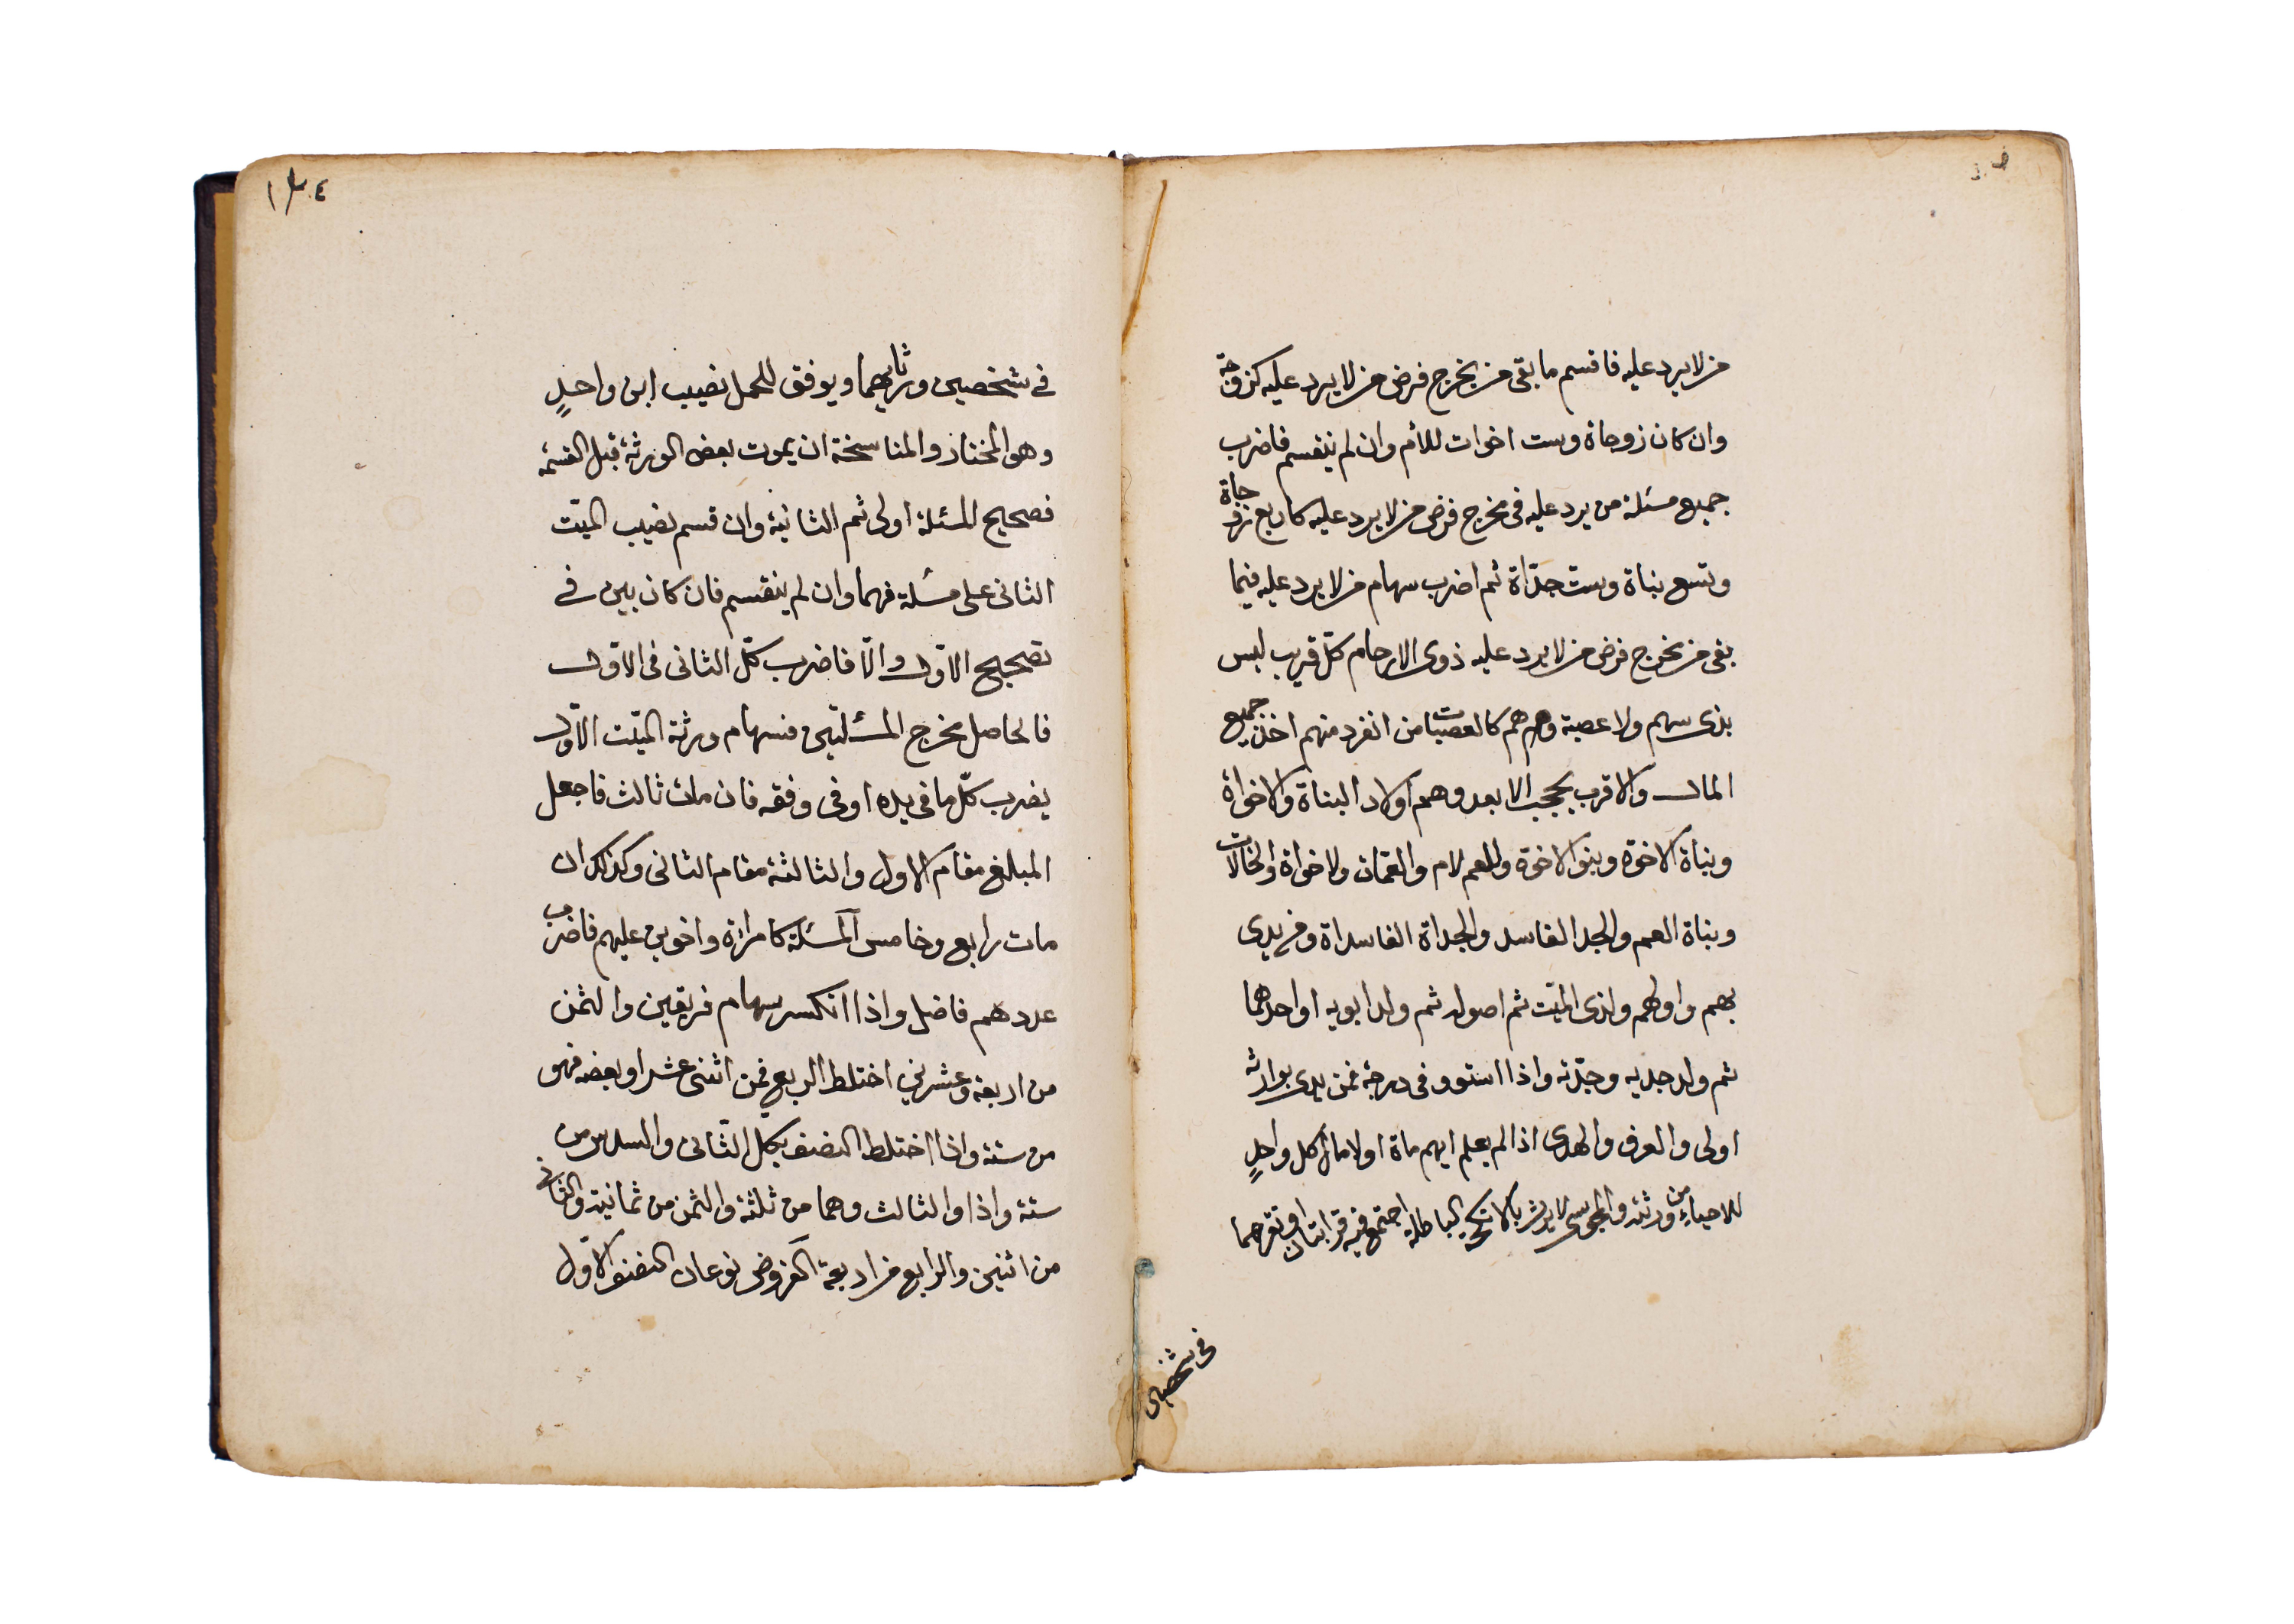 من لا يرد عليه فاقسم ما بقى من مخرج فرض من لا يرد عليه كزوجة
وان كان زوجاة وست اخوات للأم وان لم ينقسم فاضرب
جميع مسئلة من يرد عليه فى مخرج فرض من لا يرد عليه كاربع زوجاة
وتسع بناة وست جدّاة ثم اضرب سهام من لا يرد عليه فيما
بقى من مخرج فرض من لا يرد عليه ذوى الارحام كلّ قريب ليس
بذى سهم ولا عصبة وهم كالعصبات من انفرد منهم اخذ جميع
المال والاقرب يحجب الابعد وهم اولاد البناة والاخواة
وبناة الاخوة وبنو الاخوة والعم لام والعمّات ولاخواة والخالات
وبناة العم والجد الفاسد والجداة الفاسداة ومن يدى
بهم واولهم ولذى الميّت ثم اصوله ثم ولد ابويه او احدهما
ثم ولد جديه وجدّته واذا استوو فى درجة فمن يدى بوارثه
اولى والغرق والهدى اذا لم يعلم ايهم ماة اولا مال كل واحدٍ
للاحياء من ورثته والمجوسى لا يرث بالانكحة الباطلة اجتمع فيه قرابتان لو تفرقهما
فى شخصين
١٣٠٤
فى شخصين ورثا بهما ويوفق للحمل نصيب ابن واحدٍ
وهو المختار والمناسخة ان يموت بعض الورثة قبل القسمة
فصحيح المسئلة اولى ثم الثانية وان قسم نصيب الميّت
الثانى على مسئلة فهما وان لم ينقسم فان كان بين فى
تصحيح الاوّل والّا فاضرب كلّ الثانى فى الاوّل
فالحاصل مخرج المسئلتين فسهام ورثة الميّت الاوّل
يضرب كلّ ما فى يده او فى وفقه فان مات ثالث فاجعل
المبلغ مقام الاول والثالثة مقام الثانى وكذلك ان
مات رابع وخامس المسئلة كامراة واخوين عليهم فاضرب
عددهم فاضل واذا انكسر سهام فريقين والثمن
من اربعة وعشرين اختلط الربع فمن اثنى عشر او بعضه فهو
من ستة واذا اختلط النصف بكل الثّانى والسدس من
ستة واذا والثالث وهما من ثلثة والثمن من ثمانية والثانى
من اثنين والرابع من اربعة الفروض نوعان النصف الاوّل